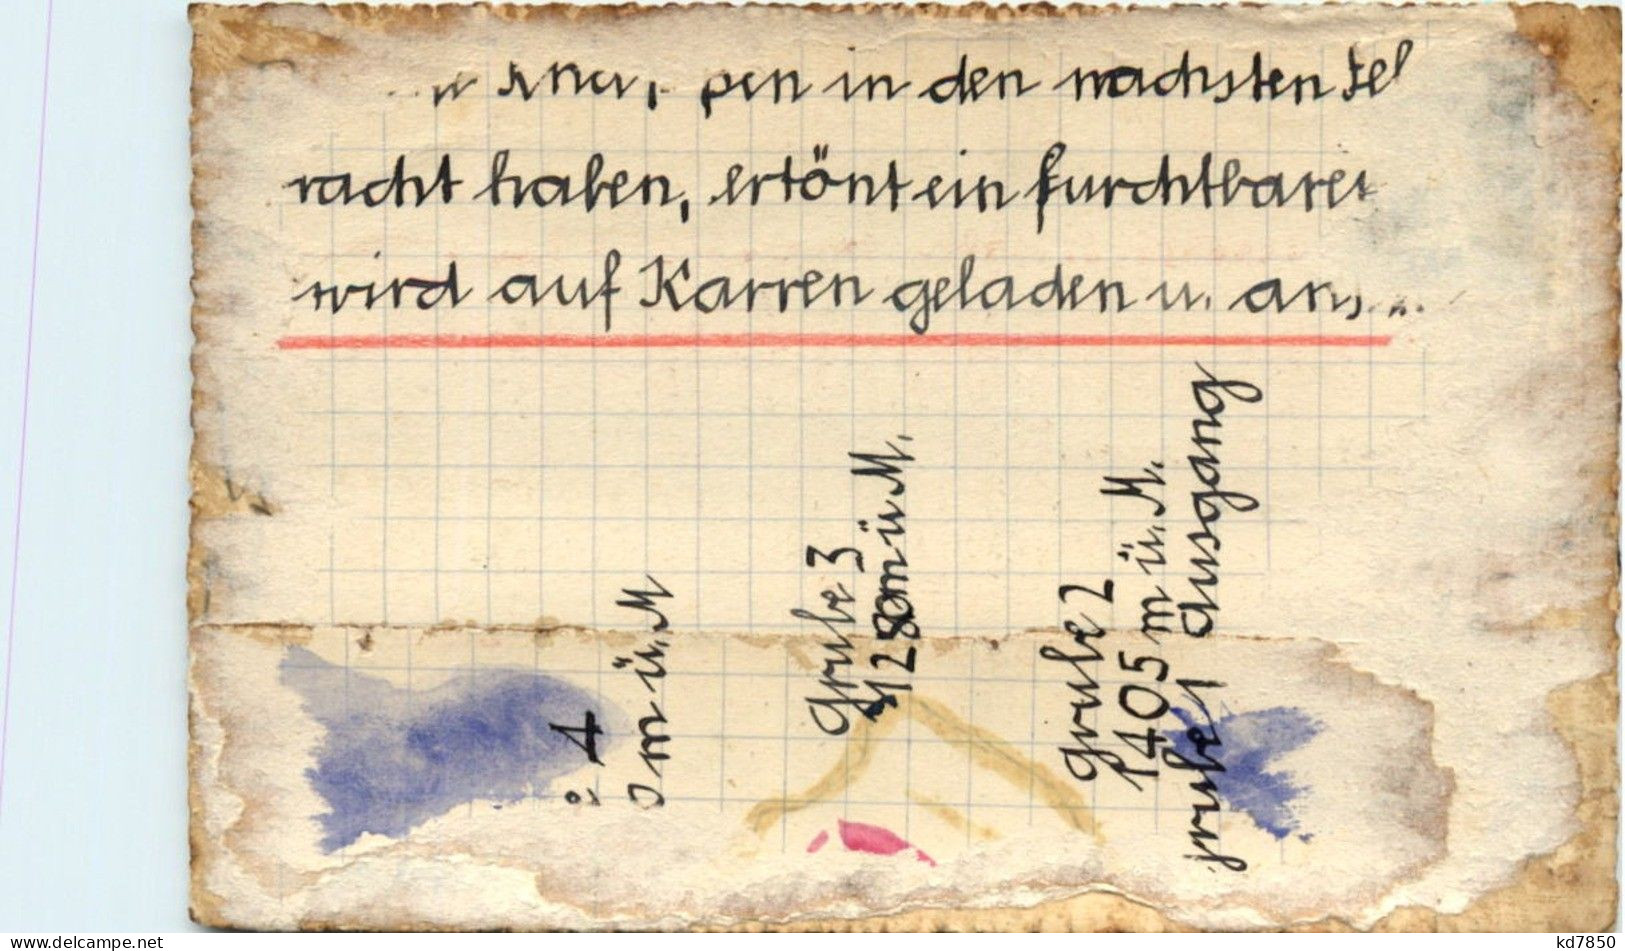 in den nächsten Fel
racht haben, ertönt ein furchtbarer
wird auf Karren geladen u. ans
4
m ü. M
Grube 3
1280m ü M.
Grube 2
1405 m ü. M.
Grube 1 Ausgang
www.delcampe.net
kd7850